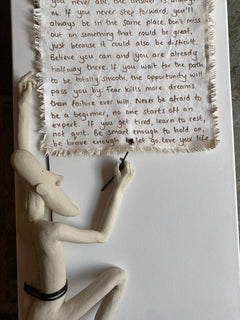 you never ask, the answer is always
no. If you never step forward, you'll
always be in the same place. Don't miss
out on something that could be great,
just because it could also be difficult.
Believe you can and you are already
halfway there. If you wait for the path
to be totally smooth, the opportunity will
pass you by. Fear kills more dreams
than failure ever will. Never be afraid to
be a beginner, no one starts off an
expert. If you get tired, learn to rest,
not quit. Be smart enough to hold on,
be brave enough to let go. Love your life